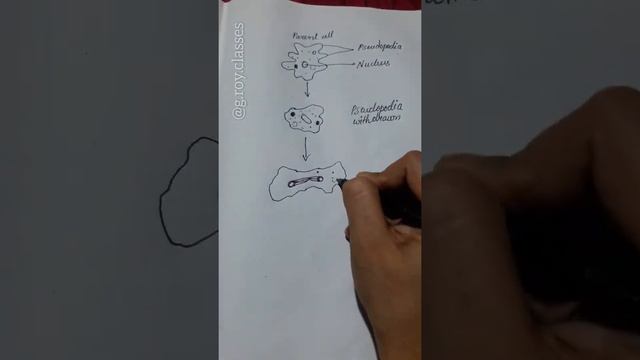 Parent cell
Pseudopodia
Nucleus
Pseudopodia
withdrawn
@g.roy.classes